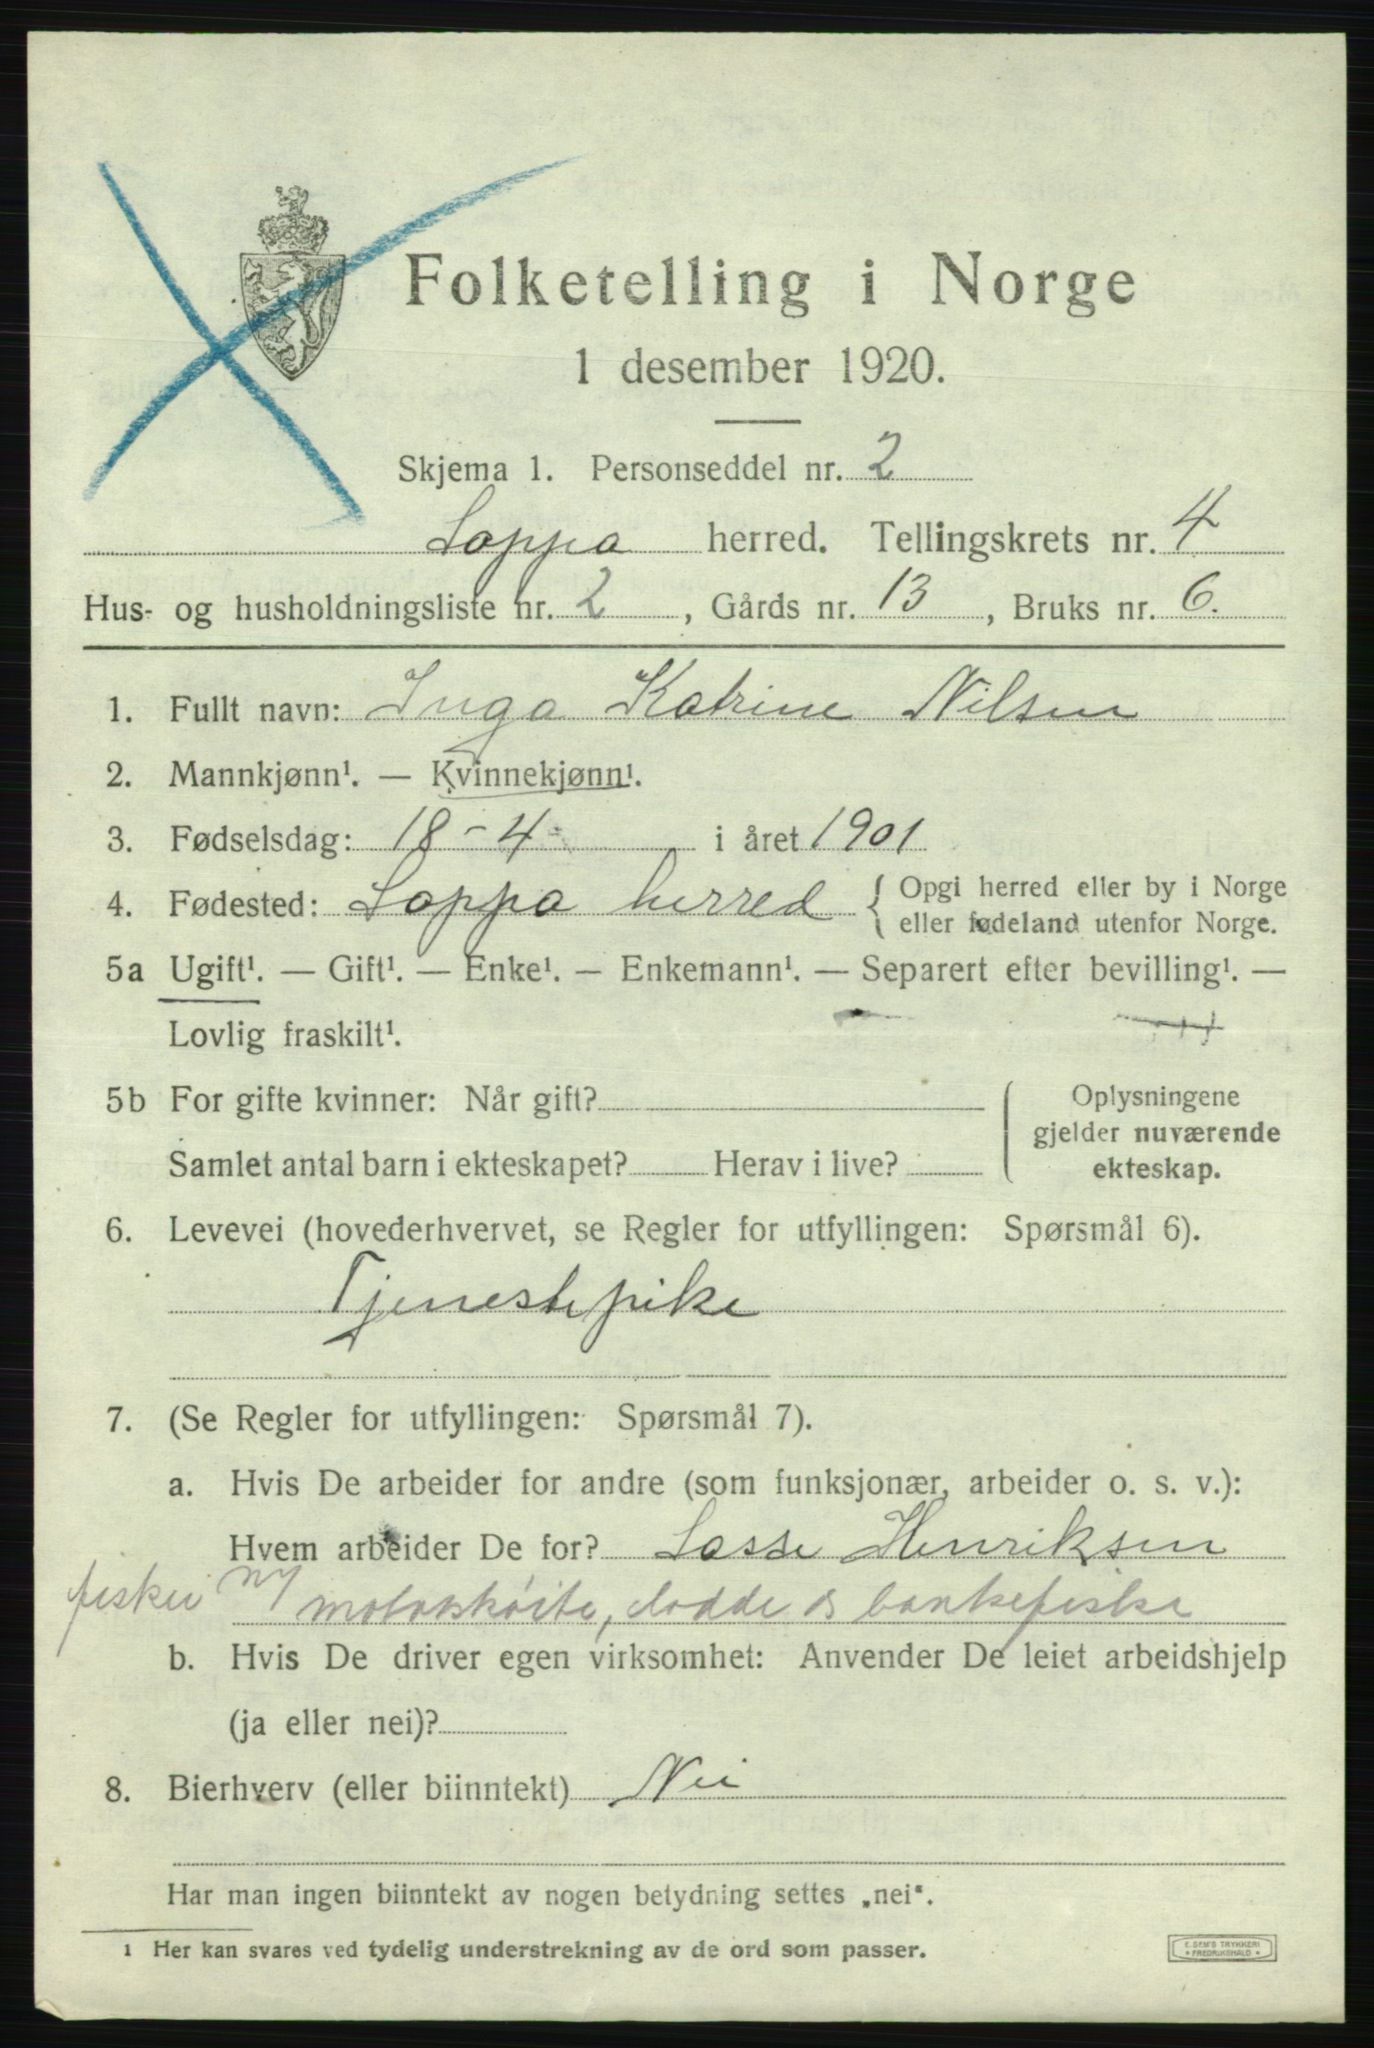 Folketelling i Norge
1 desember 1920.
Skjema 1. Personseddel nr. 2
Loppa herred. Tellingskrets nr. 4
Hus- og husholdningsliste nr. 2, Gårds nr. 13, Bruks nr. 6.
1. Fullt navn: Inga Katrine Nilsen
2. Mannkjønn¹. — Kvinnekjønn¹.
3. Fødselsdag: 18-4- i året 1901
4. Fødested: Loppa herred { Opgi herred eller by i Norge
eller fødeland utenfor Norge.
5a Ugift¹. — Gift¹. — Enke¹. — Enkemann¹. — Separert efter bevilling¹. —
Lovlig fraskilt¹.
5b For gifte kvinner: Når gift?
Samlet antal barn i ekteskapet? Herav i live?
Oplysningene
gjelder nuværende
ekteskap.
6. Levevei (hovederhvervet, se Regler for utfyllingen: Spørsmål 6).
Tjenestepike
7. (Se Regler for utfyllingen: Spørsmål 7).
a. Hvis De arbeider for andre (som funksjonær, arbeider o. s. v.):
Hvem arbeider De for? Lasse Henriksen
fisker m/ motorskøite, dodde og bankefiske
b. Hvis De driver egen virksomhet: Anvender De leiet arbeidshjelp
(ja eller nei)?
8. Bierhverv (eller biinntekt) Nei
Har man ingen biinntekt av nogen betydning settes „nei“.
1 Her kan svares ved tydelig understrekning av de ord som passer.
E. SEM'S TRYKKERI
FREDRIKSHALD